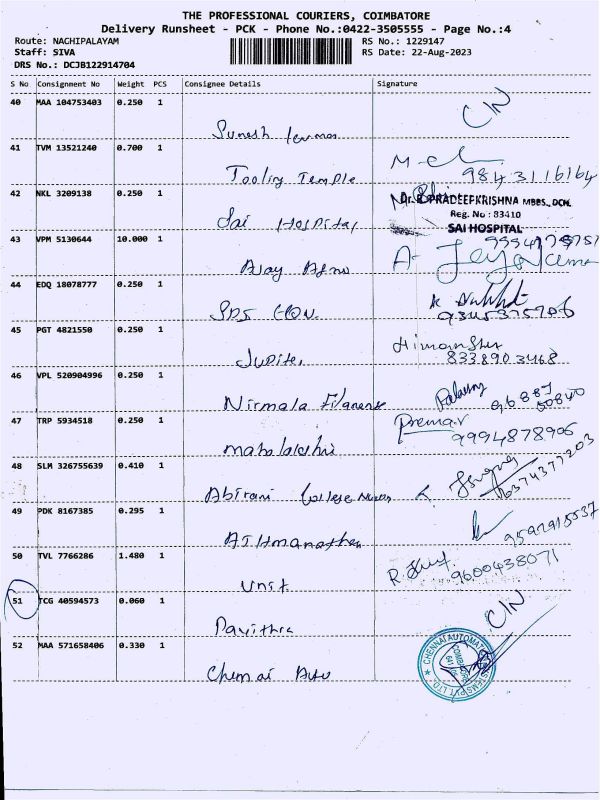 THE PROFESSIONAL COURIERS, COIMBATORE
Delivery Runsheet - PCK - Phone No.:0422-3505555 - Page No.:4
Route: NACHIPALAYAM RS No.: 1229147
Staff: SIVA RS Date: 22-Aug-2023
DRS No.: DCJB122914704
S No Consignment No Weight PCS Consignee Details Signature
40 MAA 104753403 0.250 1
CIN
Suresh
41 TVM 13521240 0.700 1
Tooling Temple 9843116164
42 NKL 3209138 0.250 1
PRADEEPKRISHNA MBBS., DCH.
Reg. No : 83410
Sai Hospital SAI HOSPITAL
43 VPM 5130644 10.000 1
44 EDQ 18078777 0.250 1
45 PGT 4821550 0.250 1
Jupiter 8338903468
46 VPL 520904996 0.250 1
Nirmala 96887
50840
47 TRP 5934518 0.250 1
Prema.V
9994878906
48 SLM 326755639 0.410 1
Abirami College
6374377203
49 PDK 8167385 0.295 1
50 TVL 7766286 1.480 1
9600438071
Unit
51 TCG 40594573 0.060 1
CIN
Pavithra
52 MAA 571658406 0.330 1
Chennai
CHENNAI AUTOMATION SYSTEMS PVT. LTD.
COIMBATORE